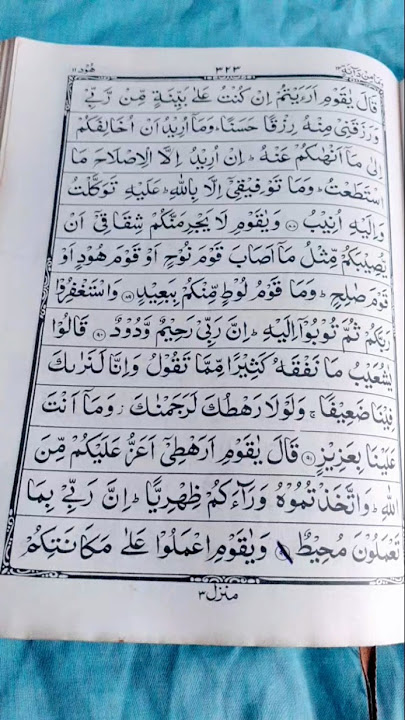 وما من دآبة ١٢ ٣٢٣ هود ١١
قَالَ يٰقَوْمِ اَرَءَيْتُمْ اِنْ كُنْتُ عَلٰى بَيِّنَةٍ مِّنْ رَّبِّيْ
وَرَزَقَنِيْ مِنْهُ رِزْقًا حَسَنًا ؕ وَمَاۤ اُرِيْدُ اَنْ اُخَالِفَكُمْ
اِلٰى مَاۤ اَنْهٰىكُمْ عَنْهُ ؕ اِنْ اُرِيْدُ اِلَّا الْاِصْلَاحَ مَا
اسْتَطَعْتُ ؕ وَمَا تَوْفِيْقِيْۤ اِلَّا بِاللّٰهِ ؕ عَلَيْهِ تَوَكَّلْتُ
وَاِلَيْهِ اُنِيْبُ ۝۸۸ وَيٰقَوْمِ لَا يَجْرِمَنَّكُمْ شِقَاقِيْۤ اَنْ
يُّصِيْبَكُمْ مِّثْلُ مَاۤ اَصَابَ قَوْمَ نُوْحٍ اَوْ قَوْمَ هُوْدٍ اَوْ
قَوْمَ صٰلِحٍ ؕ وَمَا قَوْمُ لُوْطٍ مِّنْكُمْ بِبَعِيْدٍ ۝۸۹ وَاسْتَغْفِرُوْا
رَبَّكُمْ ثُمَّ تُوْبُوْۤا اِلَيْهِ ؕ اِنَّ رَبِّيْ رَحِيْمٌ وَّدُوْدٌ ۝۹۰ قَالُوْا
يٰشُعَيْبُ مَا نَفْقَهُ كَثِيْرًا مِّمَّا تَقُوْلُ وَاِنَّا لَنَرٰىكَ
فِيْنَا ضَعِيْفًا ۚ وَلَوْلَا رَهْطُكَ لَرَجَمْنٰكَ ؗ وَمَاۤ اَنْتَ
عَلَيْنَا بِعَزِيْزٍ ۝۹۱ قَالَ يٰقَوْمِ اَرَهْطِيْۤ اَعَزُّ عَلَيْكُمْ مِّنَ
اللّٰهِ ؕ وَاتَّخَذْتُمُوْهُ وَرَآءَكُمْ ظِهْرِيًّا ؕ اِنَّ رَبِّيْ بِمَا
تَعْمَلُوْنَ مُحِيْطٌ وَيٰقَوْمِ اعْمَلُوْا عَلٰى مَكَانَتِكُمْ
منزل ٣